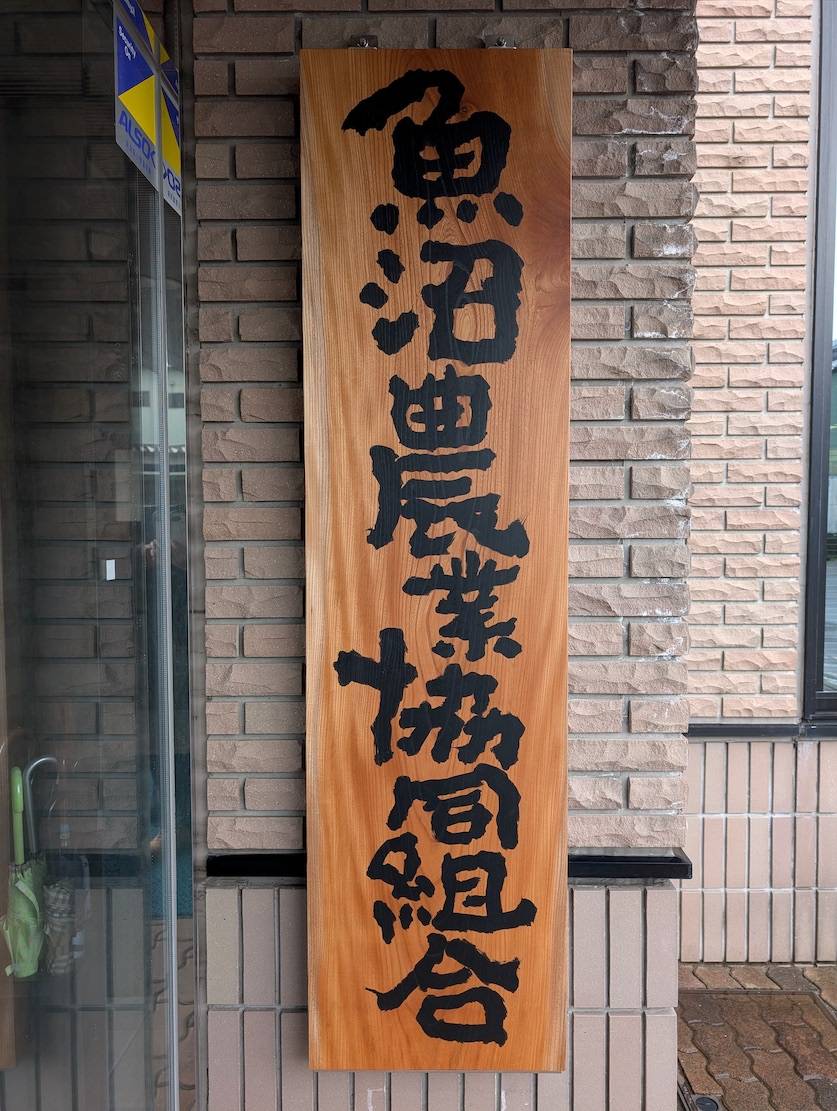 魚沼農業協同組合
ALSOK